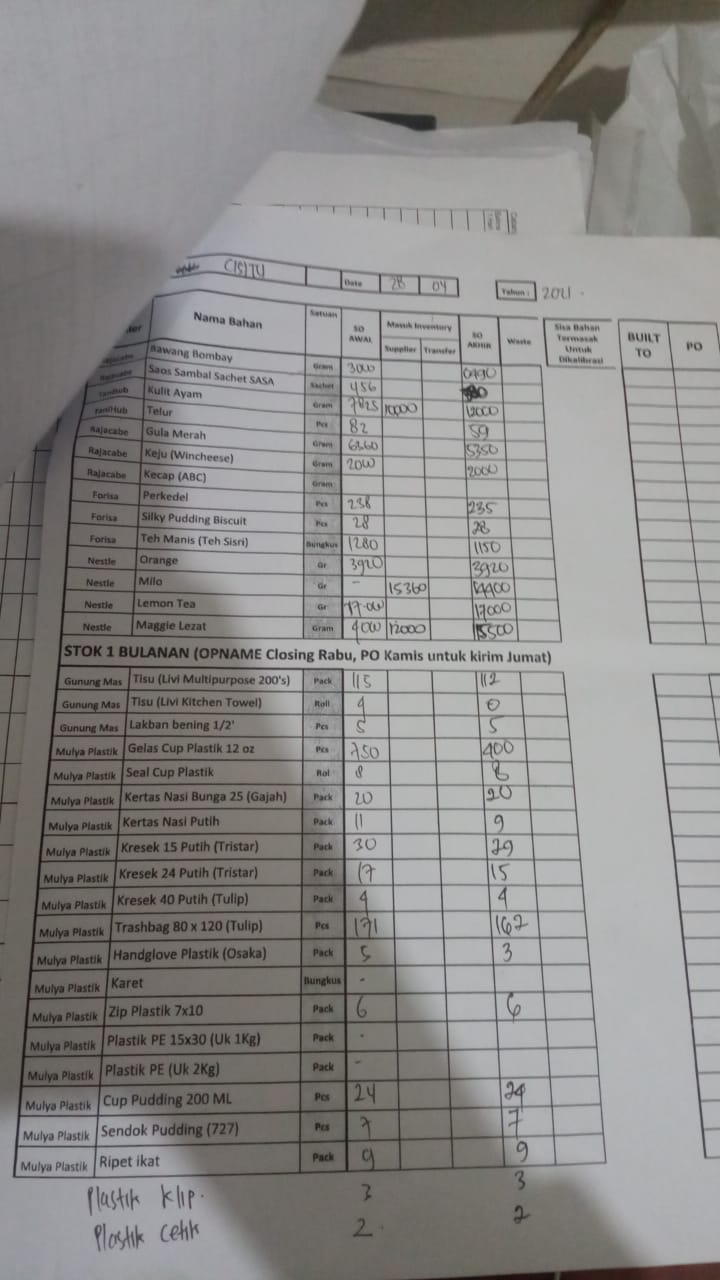 CISITU Date 28 04 Tahun : 2021
Nama Bahan Satuan SO AWAL Masuk Inventory Supplier Transfer SO AKHIR Waste Sisa Bahan Termasak Untuk Dikalibrasi BUILT TO PO
Rajacabe Bawang Bombay Gram 3000
Rajacabe Saos Sambal Sachet SASA Sachet 456
TaniHub Kulit Ayam Gram 7825 10000 12000
TaniHub Telur Pcs 82 59
Rajacabe Gula Merah Gram 6360 5350
Rajacabe Keju (Wincheese) Gram 2000 2000
Rajacabe Kecap (ABC) Gram
Forisa Perkedel Pcs 238 235
Forisa Silky Pudding Biscuit Pcs 28 28
Forisa Teh Manis (Teh Sisri) Bungkus 1280 1150
Nestle Orange Gr 3920 3920
Nestle Milo Gr - 15360
Nestle Lemon Tea Gr 17000 17000
Nestle Maggie Lezat Gram 4000 12000 15500
STOK 1 BULANAN (OPNAME Closing Rabu, PO Kamis untuk kirim Jumat)
Gunung Mas Tisu (Livi Multipurpose 200's) Pack 115 112
Gunung Mas Tisu (Livi Kitchen Towel) Roll 4 0
Gunung Mas Lakban bening 1/2' Pcs 5 5
Mulya Plastik Gelas Cup Plastik 12 oz Pcs 750 400
Mulya Plastik Seal Cup Plastik Rol 8 8
Mulya Plastik Kertas Nasi Bunga 25 (Gajah) Pack 20 20
Mulya Plastik Kertas Nasi Putih Pack 11 9
Mulya Plastik Kresek 15 Putih (Tristar) Pack 30 29
Mulya Plastik Kresek 24 Putih (Tristar) Pack 17 15
Mulya Plastik Kresek 40 Putih (Tulip) Pack 4 4
Mulya Plastik Trashbag 80 x 120 (Tulip) Pcs 171 162
Mulya Plastik Handglove Plastik (Osaka) Pack 5 3
Mulya Plastik Karet Bungkus -
Mulya Plastik Zip Plastik 7x10 Pack 6 6
Mulya Plastik Plastik PE 15x30 (Uk 1Kg) Pack -
Mulya Plastik Plastik PE (Uk 2Kg) Pack -
Mulya Plastik Cup Pudding 200 ML Pcs 24 24
Mulya Plastik Sendok Pudding (727) Pcs 7 7
Mulya Plastik Ripet ikat Pack 9 9
Plastik klip. 3 3
Plastik cetik 2. 2